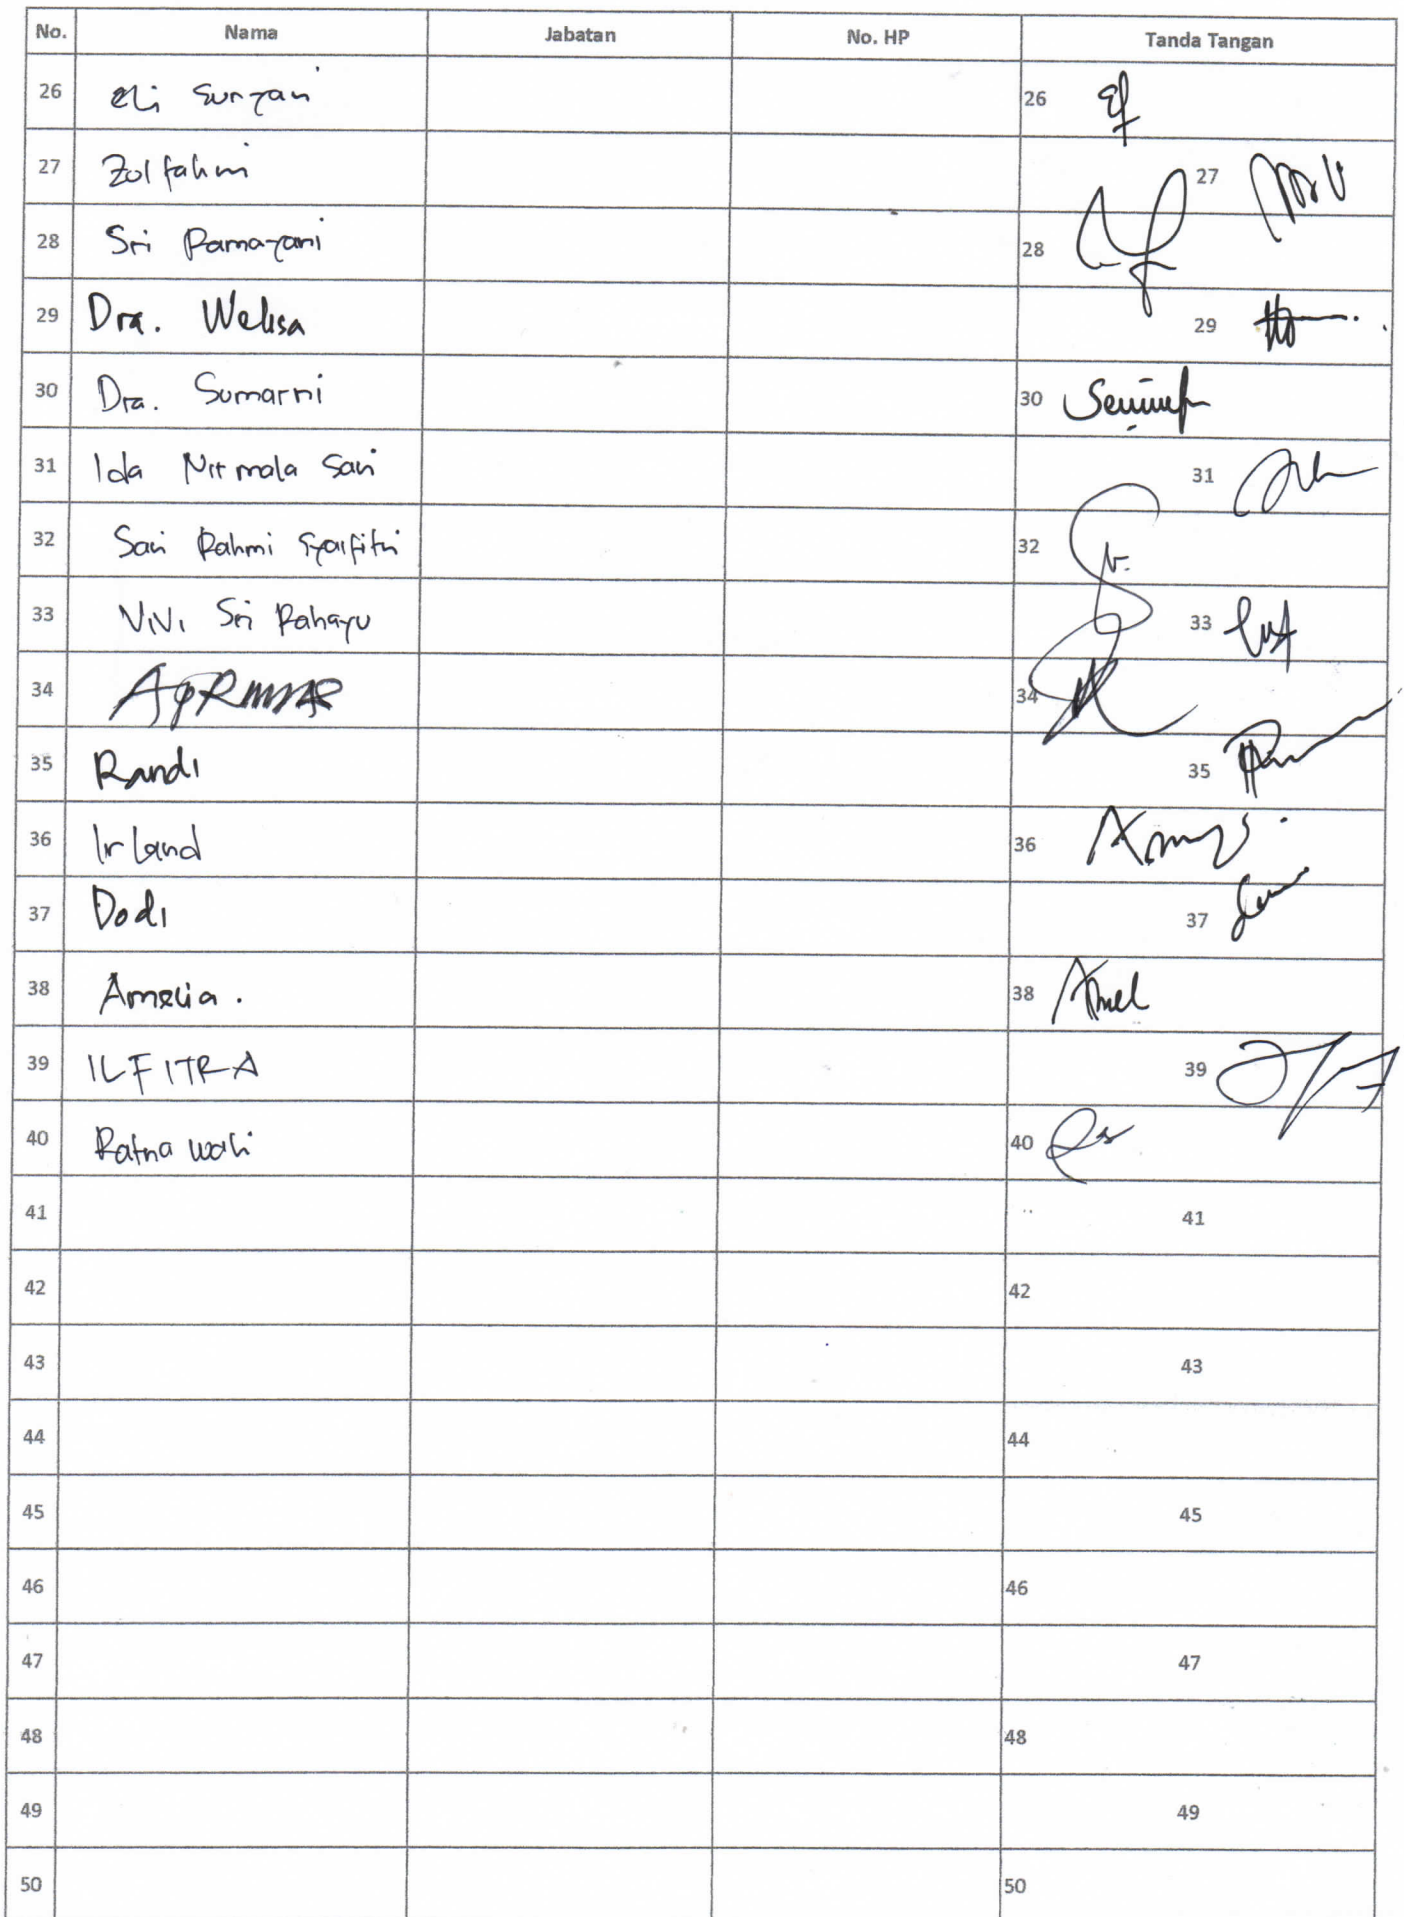 No. Nama Jabatan No. HP Tanda Tangan
26 Eli Suryani 26
27 Zulfahmi 27
28 Sri Ramayani 28
29 Dra. Welisa 29
30 Dra. Sumarni 30
31 Ida Nirmala Sari 31
32 Sari Rahmi Syaifitri 32
33 ViVi Sri Rahayu 33
34 34
35 Randi 35
36 Irland 36
37 Dodi 37
38 Amelia. 38 Amel
39 ILFITRA 39
40 Ratna wati 40
41 41
42 42
43 43
44 44
45 45
46 46
47 47
48 48
49 49
50 50